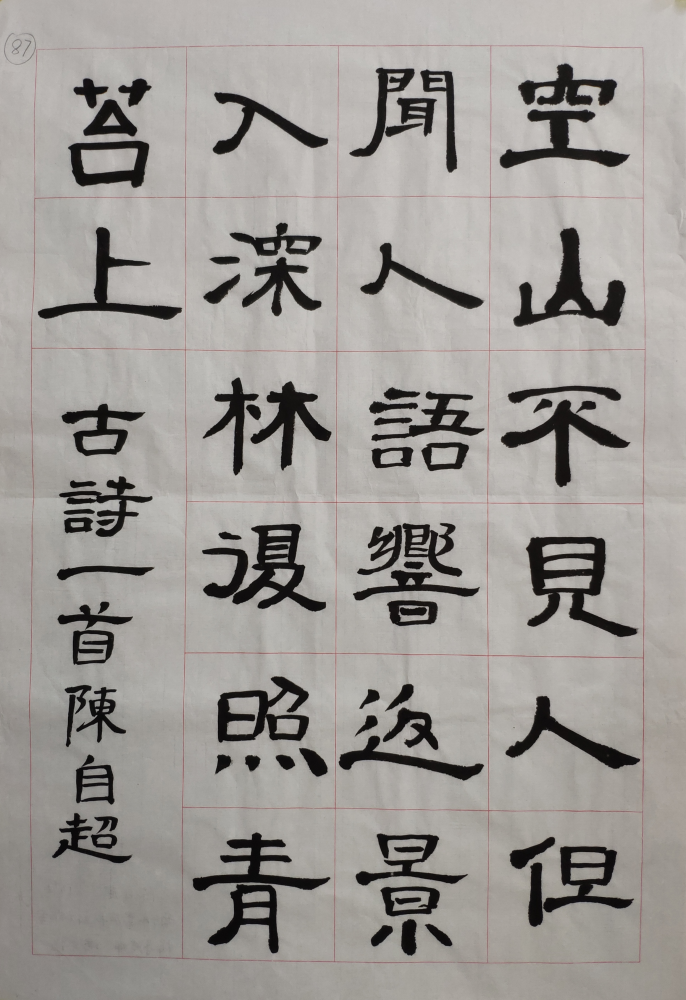 空山不見人但
聞人語響返景
入深林復照青
苔上
古詩一首陳自超
87